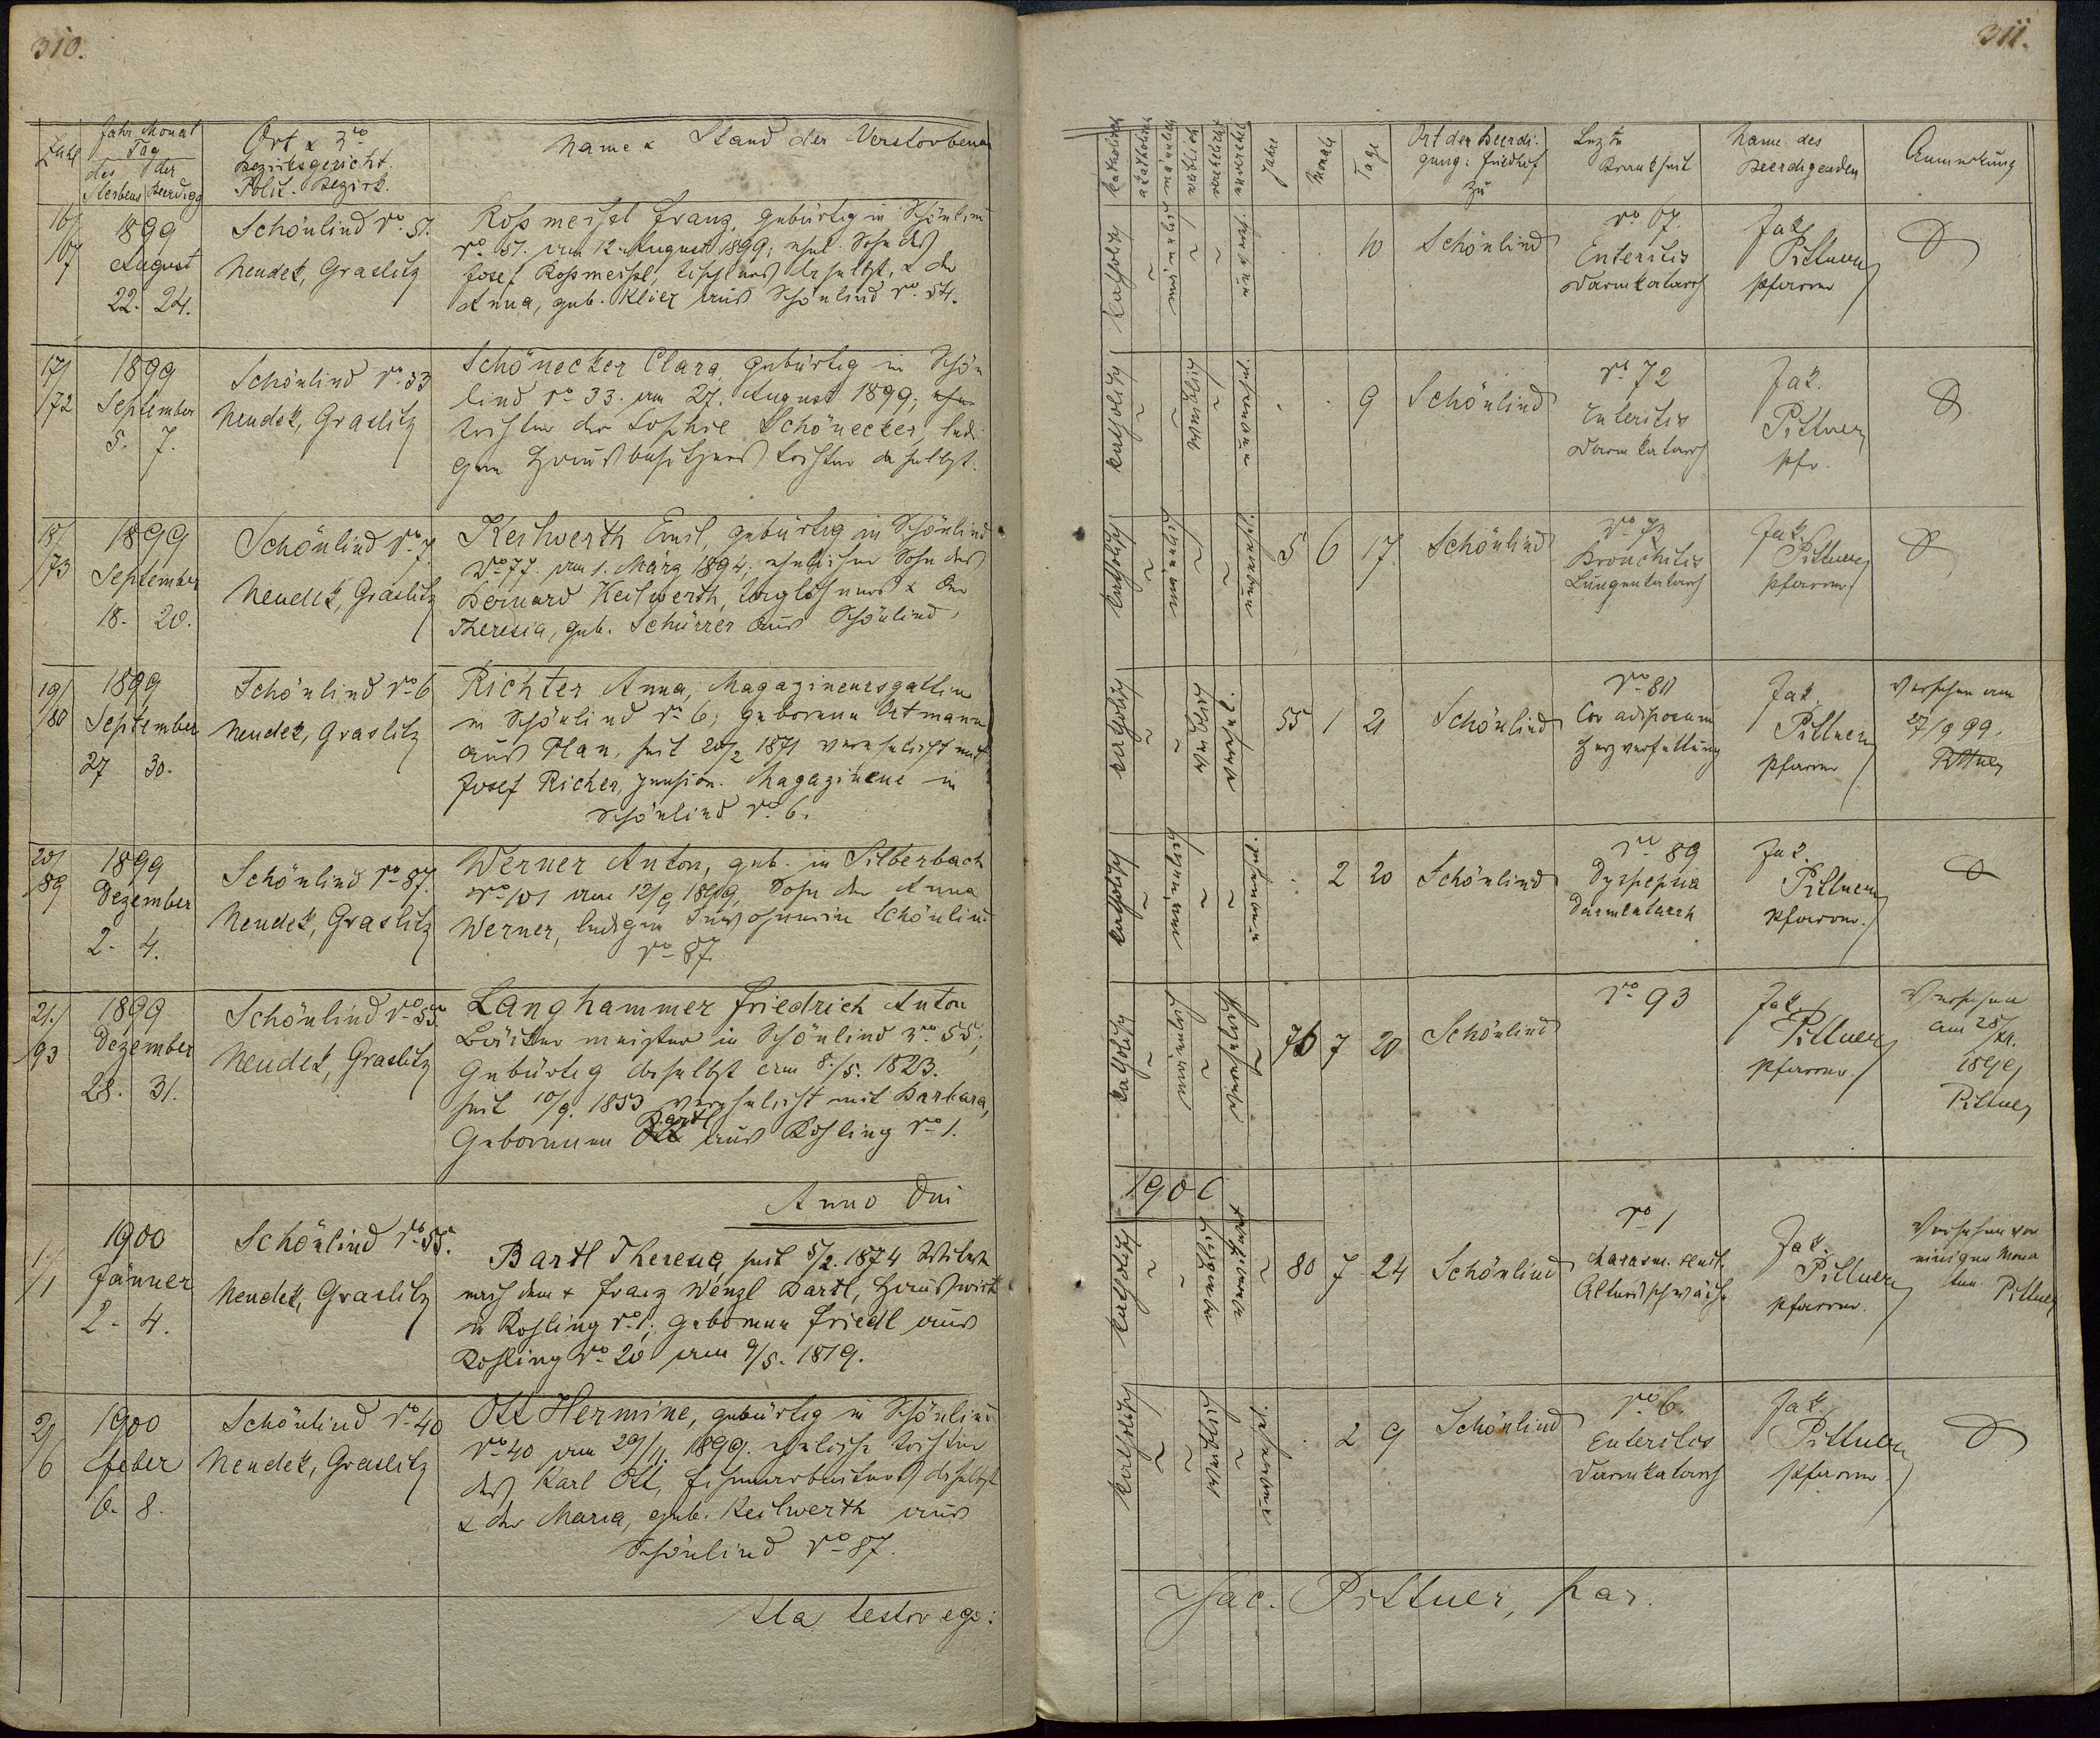 310.
Zahl
Jahr Monat
Tag
des der
Sterbens Beerdigg
Ort & Nro
Bezirksgericht.
Polit. Bezirk.
Name & Stand der Verstorbenen
16/
67
1899
August
22. 24.
Schönlind No. 51.
Neudek, Graslitz
Roßmeisl Franz, gebürtig in Schönlind
No. 51. am 12. August 1899; ehel. Sohn des
Josef Roßmeisl, Tischlers daselbst, & der
Anna, geb. Klier aus Schönlind No. 54.
17/
72
1899
September
5. 7.
Schönlind No. 33
Neudek, Graslitz
Schönecker Clara, gebürtig in Schön
lind No. 33. am 27. August 1899;
Tochter der Sophie Schönecker, ledi
gen Hausbesitzers Tochter daselbst.
18/
73
1899
September
18. 20.
Schönlind No. 7.
Neudek, Graslitz
Keilwerth Emil, gebürtig in Schönlind
No. 77 am 1. März 1894; ehelicher Sohn des
Bernard Keilwerth, Taglöhners & der
Theresia, geb. Schürrer aus Schönlind,
19/
80
1899
September
27 30.
Schönlind No. 6
Neudek, Graslitz
Richter Anna, Magazineursgattin
in Schönlind No. 6; geborene Ortmann
aus Plan, seit 20/2 1871 verehelicht mit
Josef Richer, pension. Magazineur in
Schönlind No. 6.
20/
89
1899
Dezember
2. 4.
Schönlind No. 87.
Neudek, Graslitz
Werner Anton, geb. in Silberbach
No. 101 am 12/9 1899, Sohn der Anna
Werner, ledigen Inwohnerin Schönlind
No. 87
21./
93
1899
Dezember
28. 31.
Schönlind No. 55.
Neudek, Graslitz
Langhammer Friedrich Anton
Bäckermeister in Schönlind No. 55;
Gebürtig daselbst am 8./5. 1823.
seit 10/9. 1853 verehelicht mit Barbara,
Bartl
Geborenen Ott aus Kohling No. 1.
Anno Dni
1./
1
1900
Jänner
2. 4.
Schönlind No. 55.
Neudek, Graslitz
Bartl Theresia, seit 5/2. 1874 Witwe
nach dem + Franz Wenzl Bartl, Hauswirth
in Kohling No. 1; geborene Friedl aus
Kohling No. 20 am 9/5. 1819.
2/
6
1900
Feber
6. 8.
Schönlind No. 40
Neudek, Graslitz
Ott Hermine, gebürtig in Schönlind
No. 40 am 29/11. 1899. eheliche Tochter
des Karl Ott, daselbst
& der Maria, geb. Keilwerth aus
Schönlind No. 87.
Ita testor ego:
311.
katholisch
akatholisch
mänlich
weiblich
verehlicht
unverehl.
Jahre
Monate
Tage
Ort der Beerdi-
gung: Friedhof
zu
Lezte
Krankheit
Name des
Beerdigenden
Anmerkung
katholisch
männlich
10
Schönlind
No. 67.
Enteritis
Darmkatarrh
Jak.
Pittner
Pfarrer
katholisch
weiblich
9
Schönlind
No. 72
Enteritis
Darmkatarrh
Jak.
Pittner
Pfr.
katholisch
männlich
5 6 17
Schönlind
No. 73
Bronchitis
Lungenkatarrh
Jak.
Pittner
Pfarrer
katholisch
weiblich
verehel.
55 1 21
Schönlind
No. 80
Cor adiposum
Herzverfettung
Jak.
Pittner
Pfarrer
Versehen am
27/9 99.
Pittner
katholisch
männlich
2 20
Schönlind
No. 89
Dyspepsia
Darmkatarrh
Jak.
Pittner
Pfarrer.
katholisch
männlich
verehelicht
76 7 20
Schönlind
No. 93
Jak.
Pittner
Pfarrer.
Versehen
am 28/
XII.
1899
Pittner
1900
katholisch
weiblich
verehelicht
80 7 24
Schönlind
No. 1
Marasm. senil.
Altersschwäche
Jak.
Pittner
Pfarrer.
Versehen vor
einigen Mona
ten. Pittner
katholisch
weiblich
2 9
Schönlind
No. 6.
Enteritis
Darmkatarrh
Jak.
Pittner
Pfarrer.
Jac. Pittner, par.